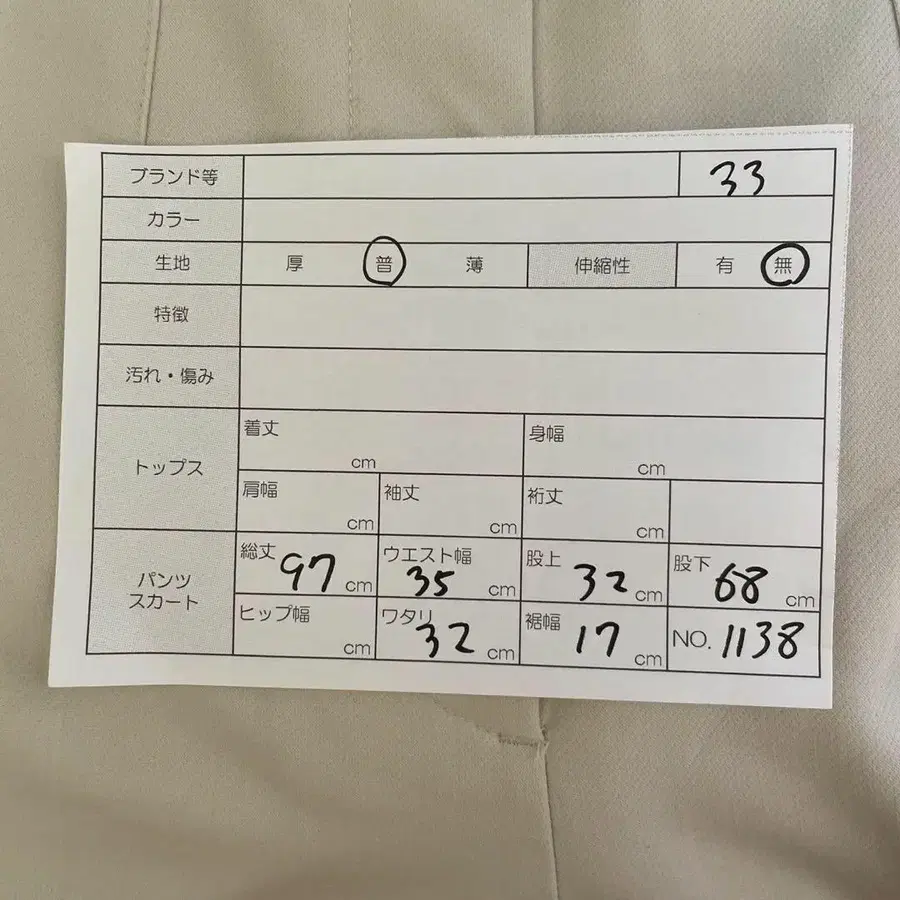 ブランド等 33
カラー
生地 厚 普 薄 伸縮性 有 無
特徴
汚れ・傷み
トップス
着丈 cm 身幅 cm
肩幅 cm 袖丈 cm 裄丈 cm
パンツ
スカート
総丈 97 cm ウエスト幅 35 cm 股上 32 cm 股下 68 cm
ヒップ幅 cm ワタリ 32 cm 裾幅 17 cm NO. 1138